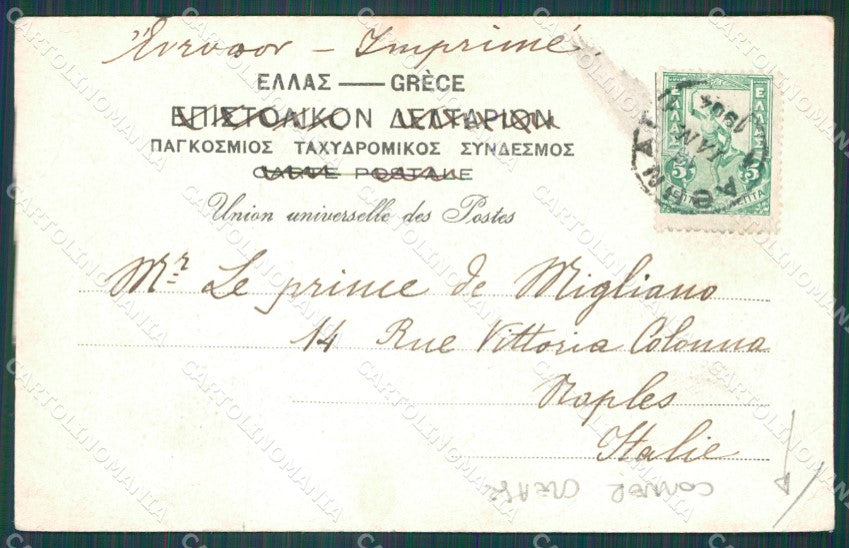 Ἔντυπον – Imprimé
ΕΛΛΑΣ — GRÈCE
ΕΠΙΣΤΟΛΙΚΟΝ ΔΕΛΤΑΡΙΟΝ
ΠΑΓΚΟΣΜΙΟΣ ΤΑΧΥΔΡΟΜΙΚΟΣ ΣΥΝΔΕΣΜΟΣ
CARTE POSTALE
Union universelle des Postes
ΕΛΛΑΣ ΕΛΛΑΣ
5 5
ΛΕΠΤΑ ΛΕΠΤΑ
1904
Mr Le prince de Migliano
14 Rue Vittoria Colonna
Naples
Italie
CORNER CREASE
CARTOLINOMANIA